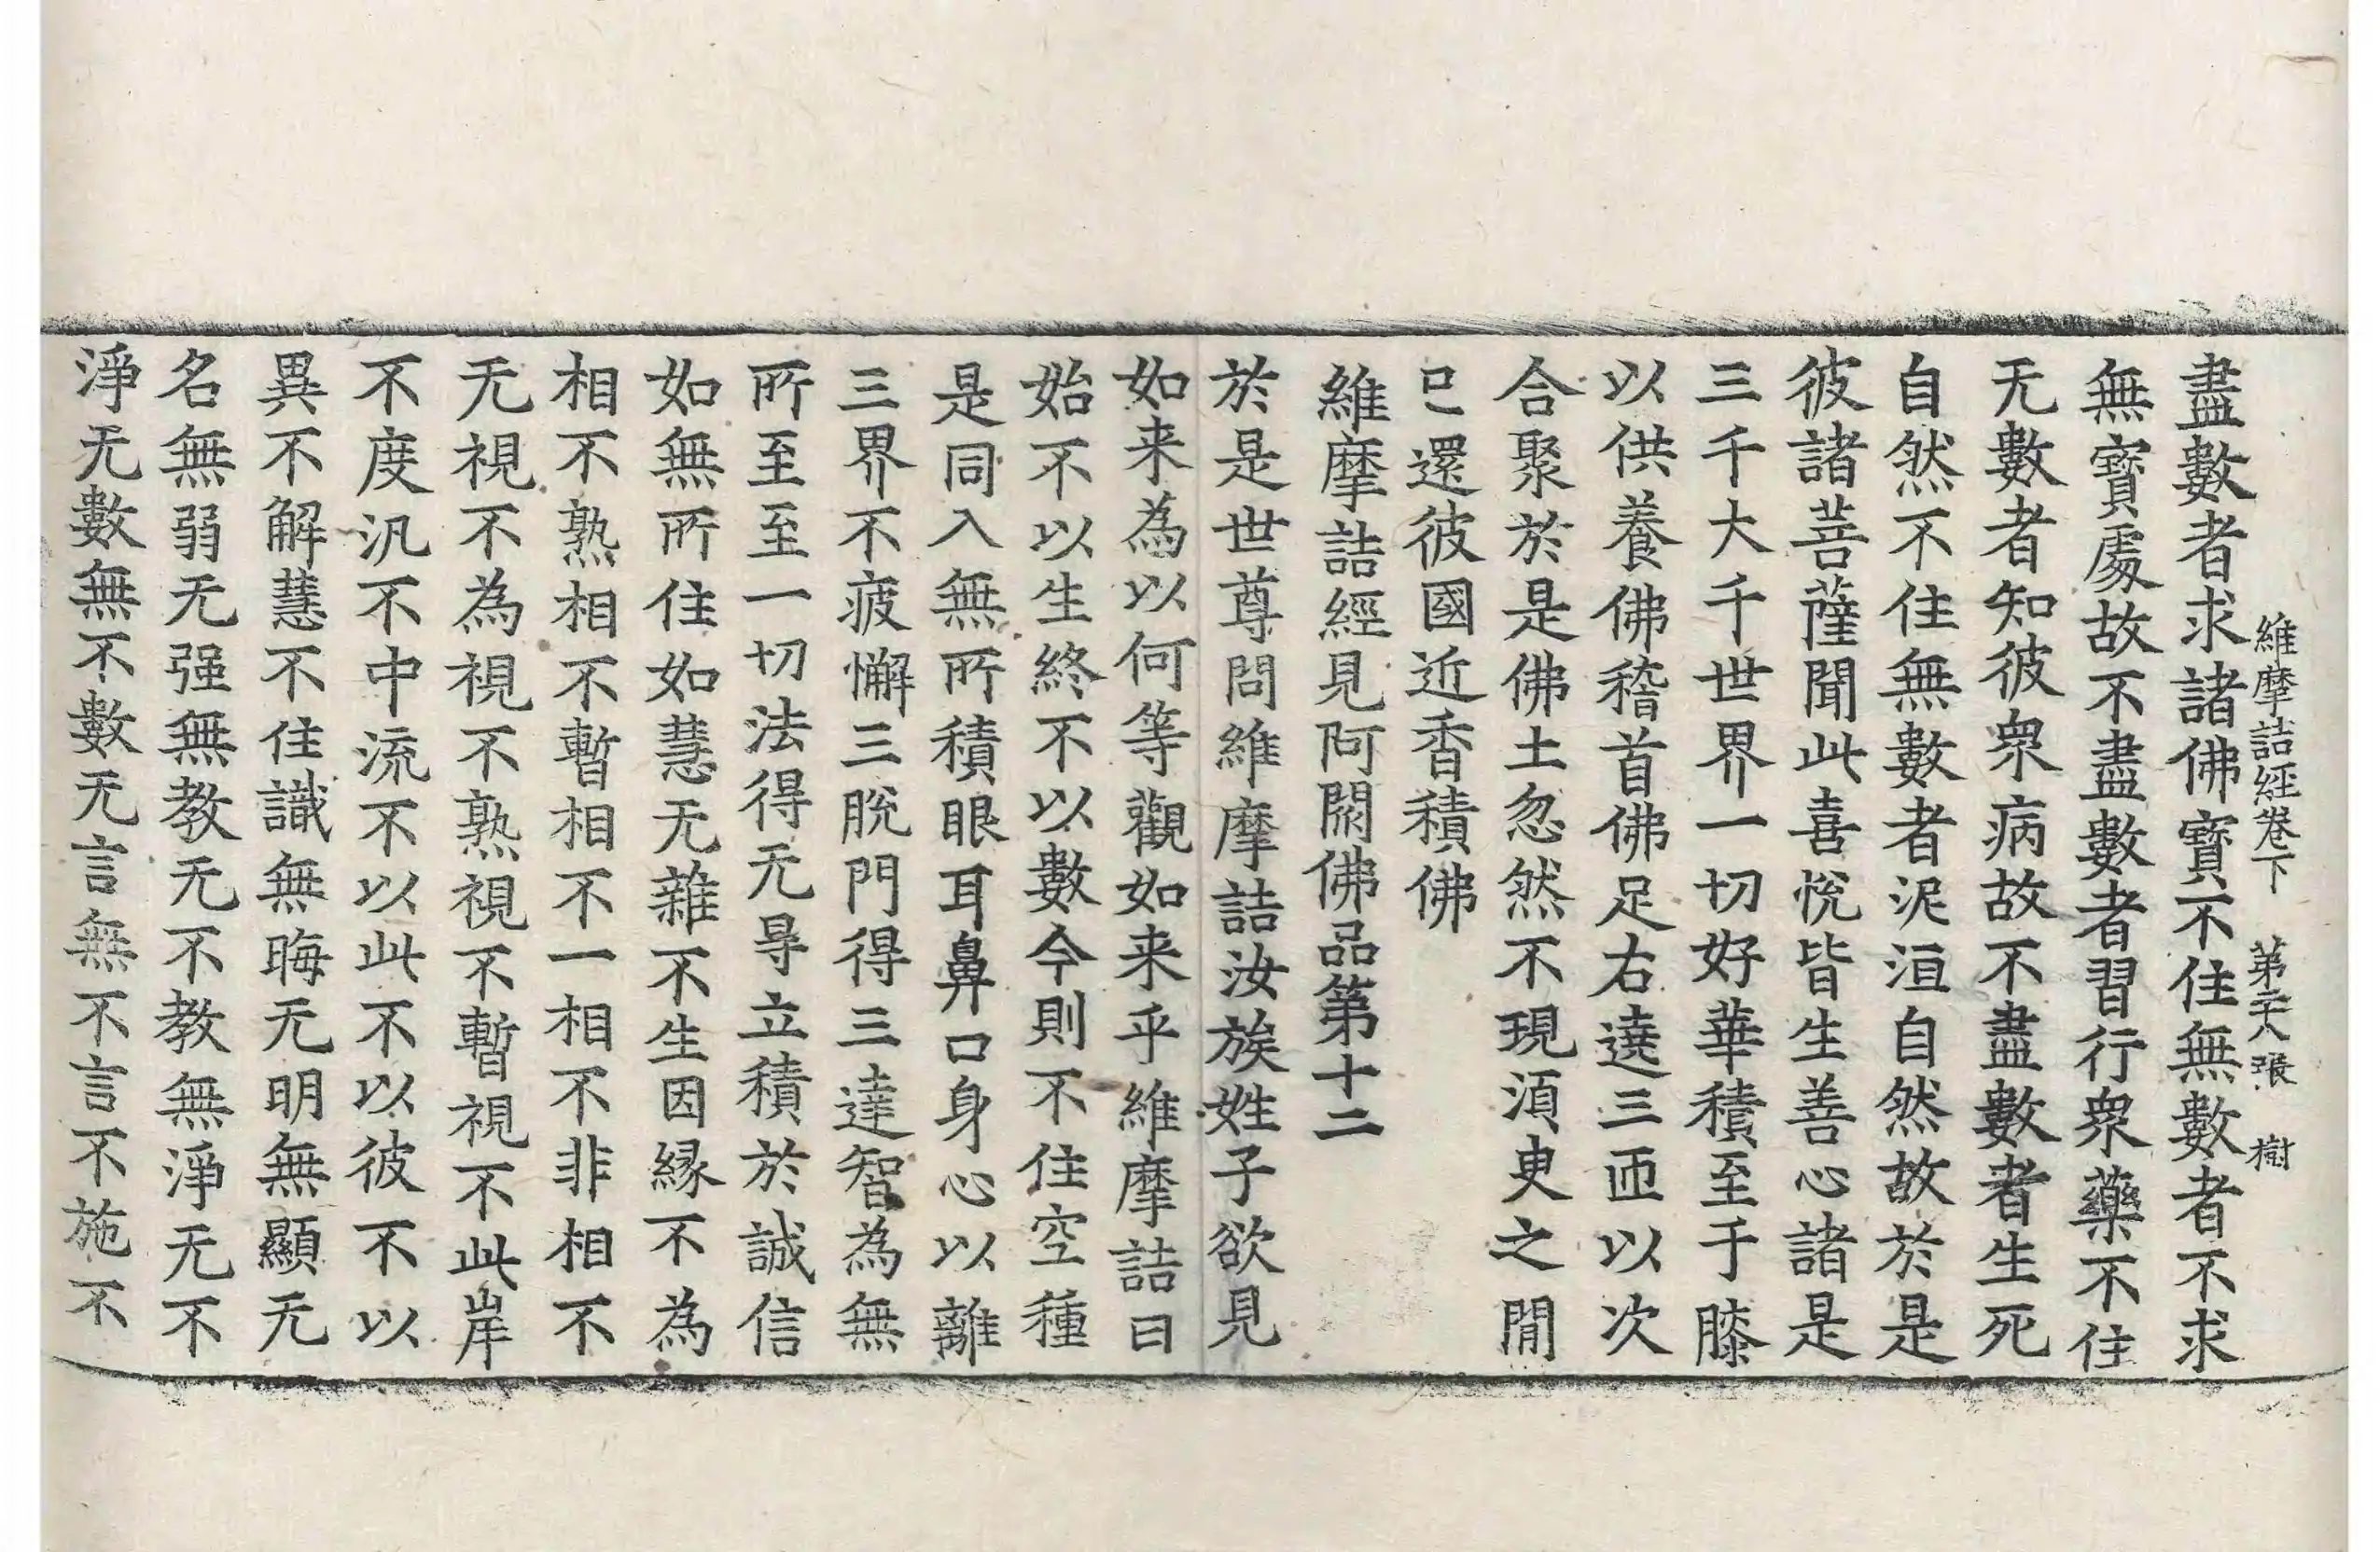 維摩詰經卷下 第二十八張 樹
盡數者求諸佛寶不住無數者不求
無寶處故不盡數者習行衆藥不住
无數者知彼衆病故不盡數者生死
自然不住無數者泥洹自然故於是
彼諸菩薩聞此喜悅皆生善心諸是
三千大千世界一切好華積至于膝
以供養佛稽首佛足右遶三匝以次
合聚於是佛土忽然不現須臾之閒
已還彼國近香積佛
維摩詰經見阿閦佛品第十二
於是世尊問維摩詰汝族姓子欲見
如来為以何等觀如来乎維摩詰曰
始不以生終不以數今則不住空種
是同入無所積眼耳鼻口身心以離
三界不疲懈三脫門得三達智為無
所至至一切法得无㝵立積於誠信
如無所住如慧无雜不生因縁不為
相不熟相不暫相不一相不非相不
无視不為視不熟視不暫視不此岸
不度汎不中流不以此不以彼不以
異不解慧不住識無晦无明無顯无
名無弱无强無教无不教無淨无不
淨无數無不數无言無不言不施不